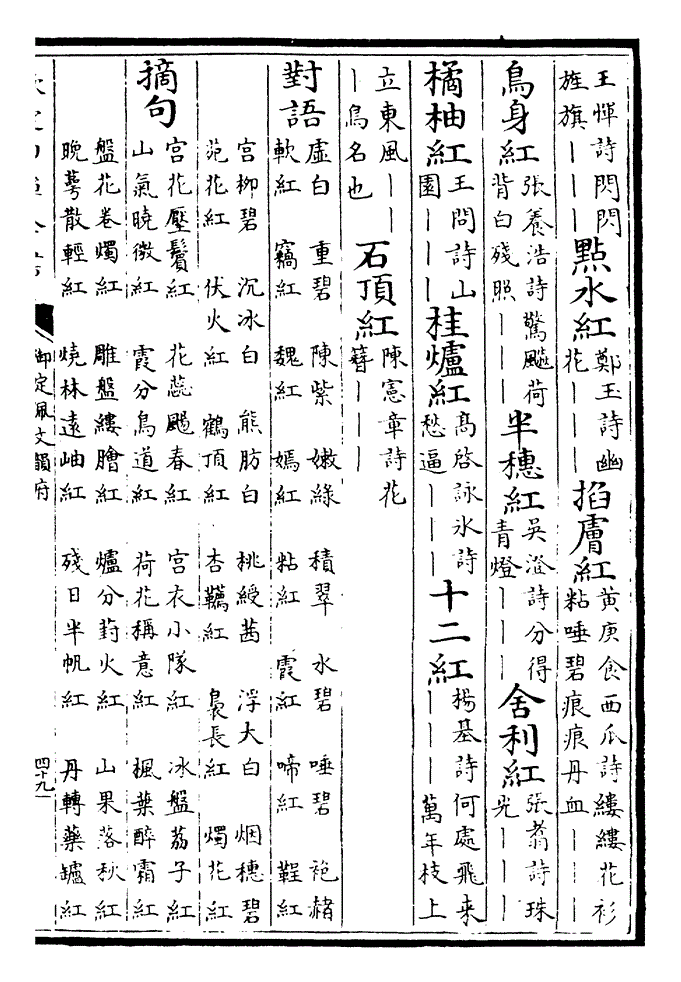 王惲詩閃閃
旌旗｜｜｜
點水紅
鄭玉詩幽
花｜｜｜
掐膚紅
黃庚食西瓜詩縷縷花衫
粘唾碧痕痕丹血｜｜｜
鳥身紅
張養浩詩驚颷荷
背白殘照｜｜｜
半穗紅
吳澄詩分得
青燈｜｜｜
舍利紅
張翥詩珠
光｜｜｜
橘柚紅
王問詩山
園｜｜｜
桂爐紅
高啓詠氷詩
愁逼｜｜｜
十二紅
楊基詩何處飛来
｜｜｜萬年枝上
立東風｜｜
｜鳥名也
石頂紅
陳憲章詩花
簪｜｜｜
對語
虛白 重碧 陳紫 嫩綠 積翠 水碧 唾碧 袍赭
軟紅 竊紅 魏紅 嫣紅 粘紅 霞紅 啼紅 鞓紅
宫柳碧 沉冰白 熊肪白 桃綬茜 浮大白 烟穗碧
苑花紅 伏火紅 鶴頂紅 杏韉紅 裊長紅 燭花紅
摘句
宫花壓鬢紅 花蕊颺春紅 宫衣小隊紅 冰盤荔子紅
山氣曉微紅 霞分鳥道紅 荷花稱意紅 楓葉醉霜紅
盤花卷燭紅 雕盤縷膾紅 爐分葑火紅 山果落秋紅
晚萼散輕紅 燒林遠岫紅 殘日半帆紅 丹轉藥罏紅
御定佩文韻府
四十九